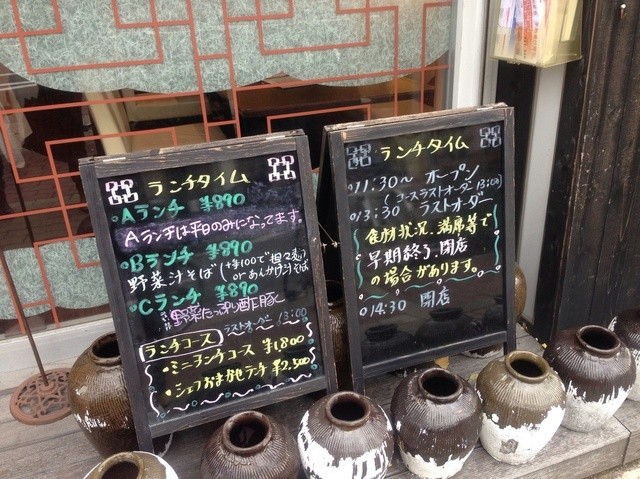 ランチタイム
Aランチ ¥890
Aランチは平日のみになってます。
Bランチ ¥890
野菜汁そば (+¥100で担々麺
orあんかけ汁そば
Cランチ ¥890
野菜たっぷり酢豚
ラストオーダー 13:00
ランチコース
・ミニランチコース ¥1,800
・シェフおまかせランチ ¥2,500
ランチタイム
11:30〜 オープン
(コースラストオーダー 13:00)
13:30 ラストオーダー
食材状況、満席等で
早期終了、閉店
の場合があります。
14:30 閉店